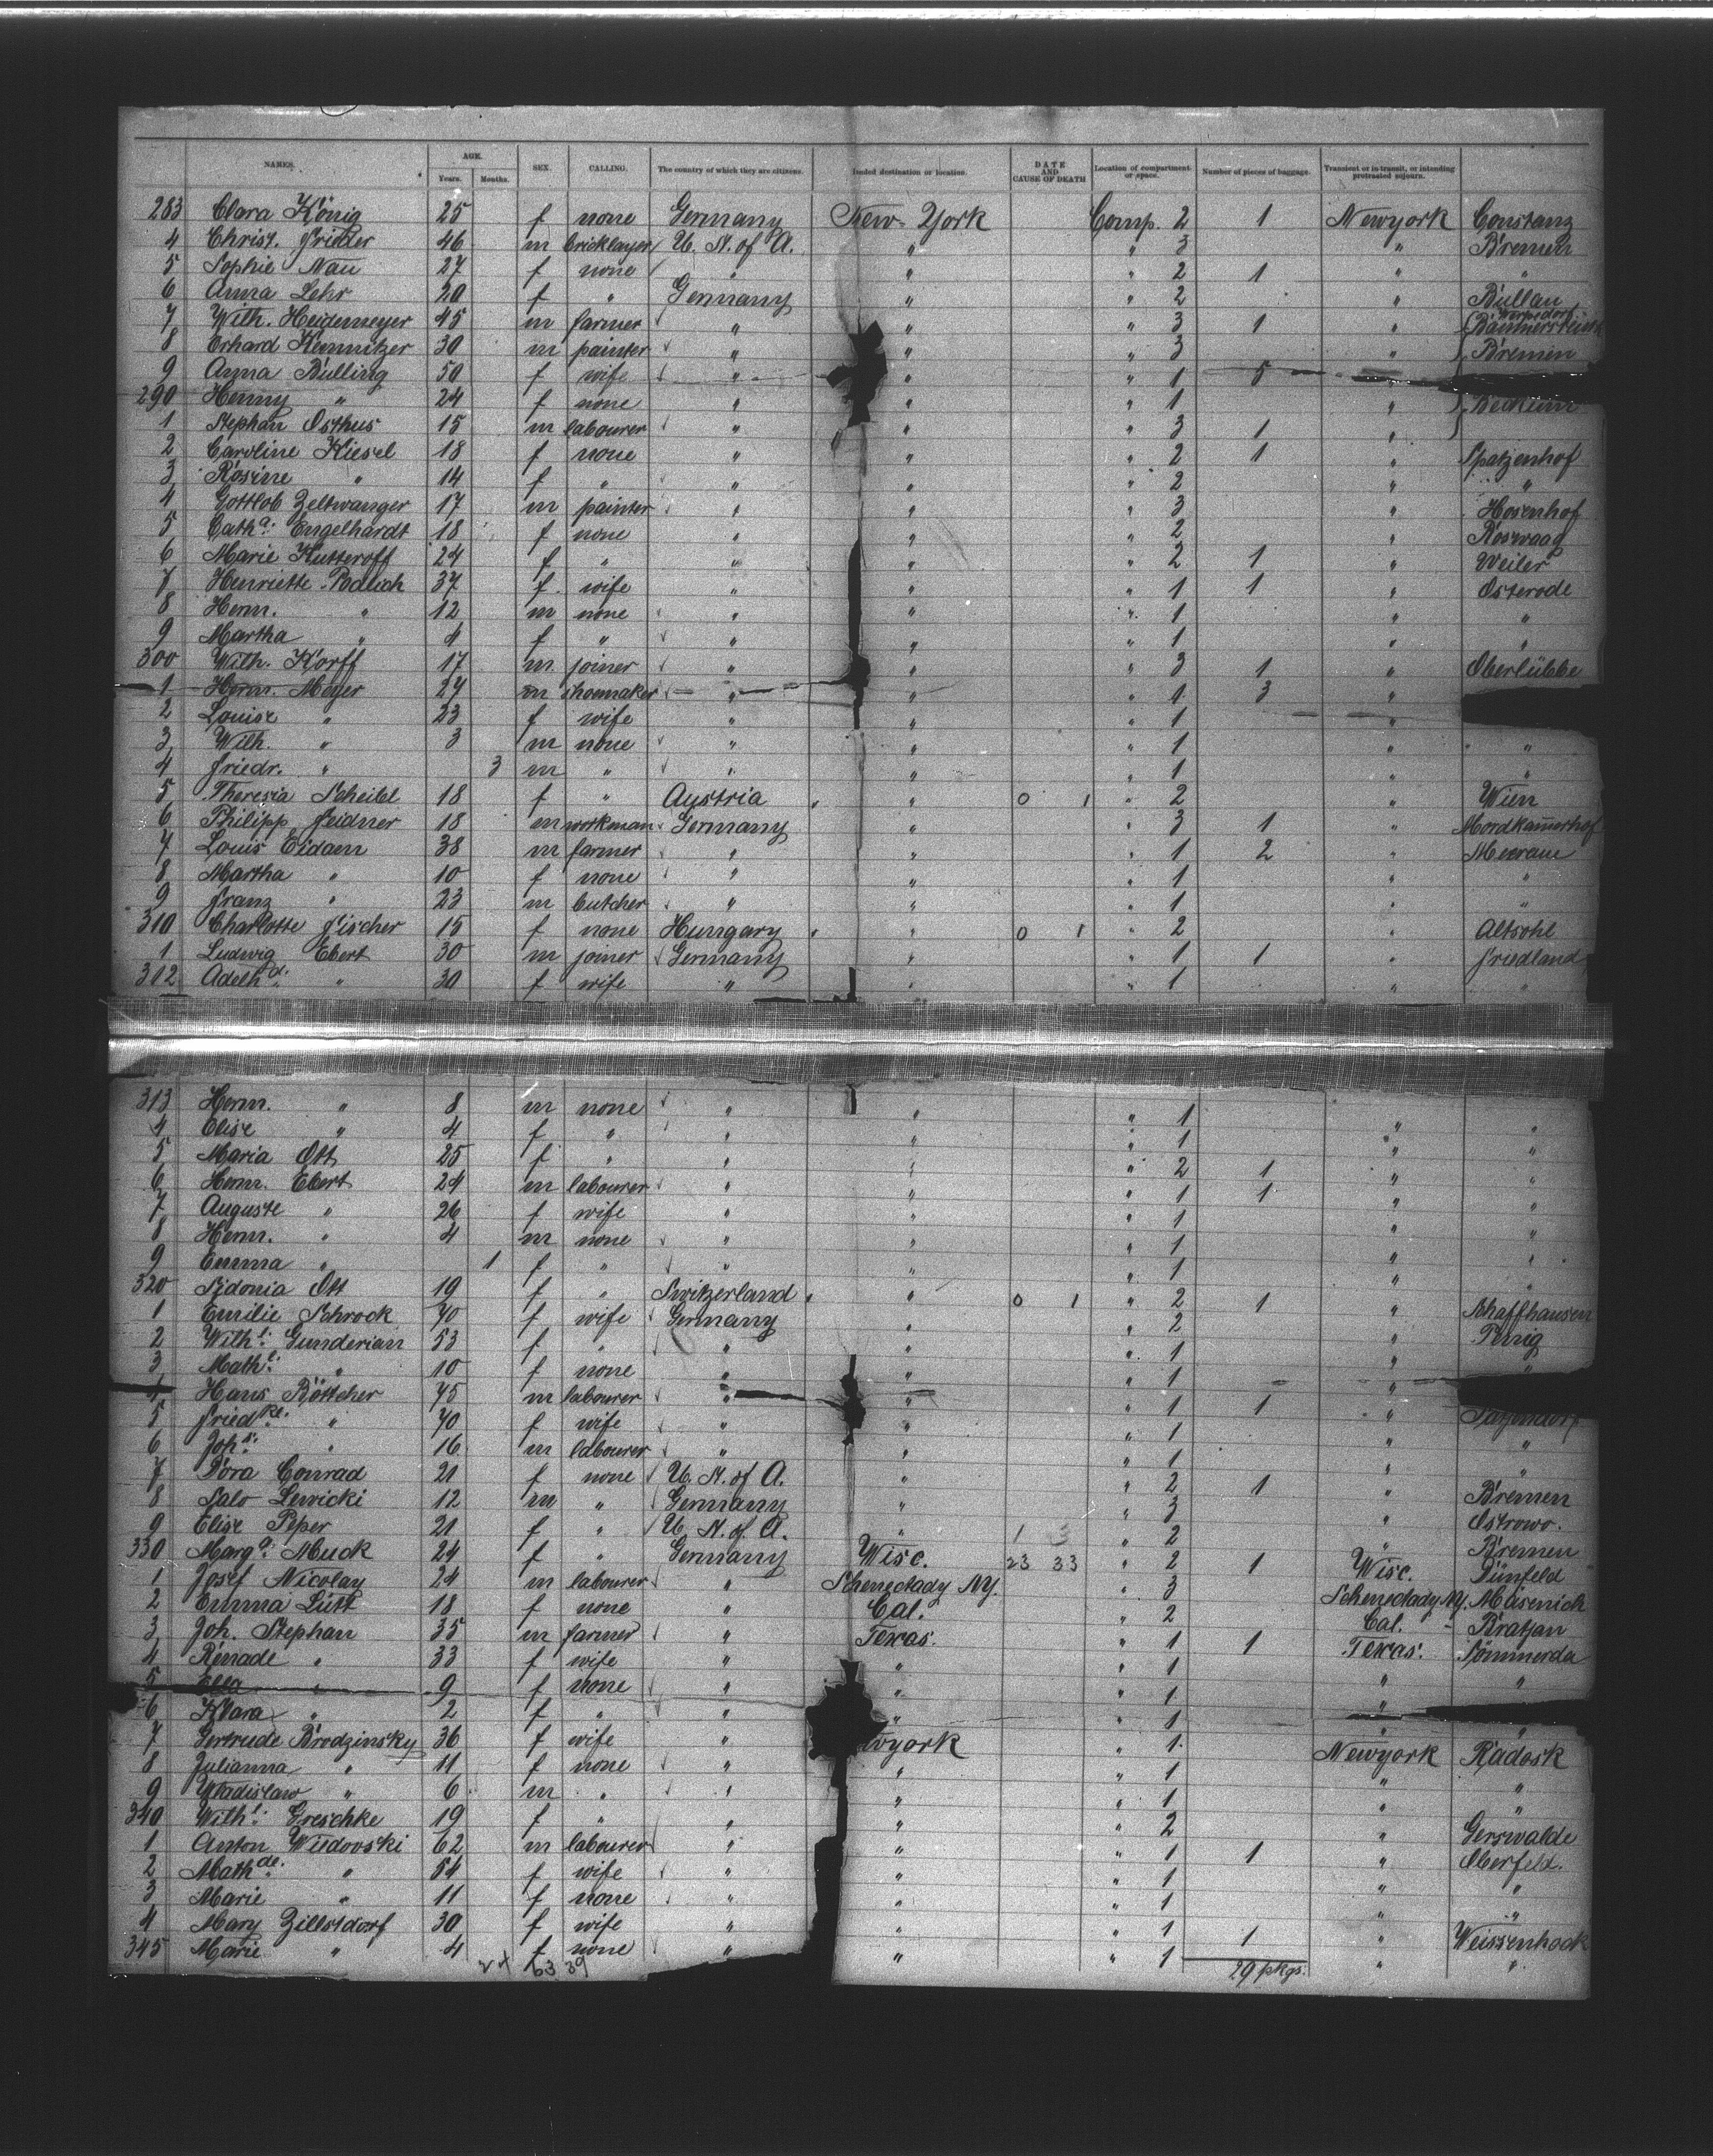 NAMES. AGE. Years. Months. SEX. CALLING. The country of which they are citizens. Intended destination or location. DATE AND CAUSE OF DEATH Location of compartment or space. Number of pieces of baggage. Transient or in transit, or intending protracted sojourn.
283 Clara König 25 f none Germany New-York Comp. 2 1 Newyork Constanz
4 Christ. Friedler 46 m bricklayer U. St. of A. " " 3 " Bremen
5 Sophie Nau 27 f none " " " 2 1 " "
6 Anna Lehr 20 f " Germany " " 2 " Büllau
7 Wilh. Heidemeyer 45 m farmer " " " 3 1 "
8 Erhard Kemnitzer 30 m painter " " " 3 " Bremen
9 Anna Bülling 50 f wife " " " 1 5 "
290 Henny " 24 f none " " " 1 " Beckum
1 Stephan Osthus 15 m labourer " " " 3 1 "
2 Caroline Kiesel 18 f none " " " 2 1 " Spatzenhof
3 Rosine " 14 f " " " " 2 " "
4 Gottlob Zeltwanger 17 m painter " " " 3 " Hosenhof
5 Cath.a: Engelhardt 18 f none " " " 2 " Roswaag
6 Marie Kutteroff 24 f " " " " 2 1 " Weiler
7 Henriette Poduch 37 f wife " " " 1 1 " Osterode
8 Herm. " 12 m none " " " 1 " "
9 Martha " 4 f " " " " 1 " "
300 Wilh. Korff 17 m joiner " " " 3 1 " Oberlübbe
1 Herm. Meyer 27 m shoemaker " " " 1 3 "
2 Louise " 23 f wife " " " 1 "
3 Wilh. " 3 m none " " " 1 " "
4 Friedr. " 3 m " " " " 1 " "
5 Theresia Scheibl 18 f " Austria " 0 1 " 2 " Wien
6 Philipp Feidner 18 m workman Germany " " 3 1 " Mordkamerhof
7 Louis Eidam 38 m farmer " " " 1 2 " Meerane
8 Martha " 10 f none " " " 1 " "
9 Franz " 23 m butcher " " " 1 " "
310 Charlotte Fischer 15 f none Hungary " 0 1 " 2 " Altsohl
1 Ludwig Ebert 30 m joiner Germany " " 1 1 " Friedland
312 Adelhd. " 30 f wife " " " 1 " "
313 Herm. " 8 m none " " " 1 " "
4 Elise " 4 f " " " " 1 " "
5 Maria Ott 25 f " " " " 2 1 " "
6 Herm. Ebert 24 m labourer " " " 1 1 " "
7 Auguste " 26 f wife " " " 1 " "
8 Herm. " 4 m none " " " 1 " "
9 Emma " 1 f " " " " 1 " "
320 Sidonia Ott 19 f " Switzerland " 0 1 " 2 1 " Schaffhausen
1 Emilie Schrock 40 f wife Germany " " 2 " Penig
2 Wilh.e: Gunderian 53 f " " " " 1 "
3 Math.e: " 10 f none " " " 1 " "
4 Hans Böttcher 45 m labourer " " " 1 1 "
5 Friedke. " 40 f wife " " " 1 " "
6 Johs: " 16 m labourer " " " 1 " "
7 Dora Conrad 21 f none U. St. of A. " " 2 1 " Bremen
8 Salo Lewicki 12 m " Germany " " 3 " Ostrowo.
9 Elise Peper 21 f " U. St. of A. " 1 3 " 2 " Bremen
330 Marg.a: Muck 24 f " Germany Wisc. 23 33 " 2 1 Wisc. Hünfeld
1 Josef Nicolay 24 m labourer " Schenectady NY. " 3 Schenectady NY. Mäsenich
2 Emma Lütt 18 f none " Cal. " 2 Cal. Bratjan
3 Joh. Stephan 35 m farmer " Texas. " 1 1 Texas. Sömmerda
4 Renade " 33 f wife " " " 1 " "
5 Ella " 9 f none " " " 1 "
6 Klara " 2 f " " " " 1 " "
7 Gertrude Brodzinsky 36 f wife " wyork " 1 Newyork Radosk
8 Julianna " 11 f none " " " 1 " "
9 Wladislaw " 6 m " " " " 1 " "
340 Wilh.e: Greschke 19 f " " " " 2 " Gerswalde
1 Anton Wiedovski 62 m labourer " " " 1 1 " Oberfeld.
2 Mathde. " 54 f wife " " " 1 " "
3 Marie " 11 f none " " " 1 " "
4 Mary Zillsdorf 30 f wife " " " 1 1 " Weissenhock
345 Marie " 4 f none " " " 1 " "
24 63 39 29 pkgs.